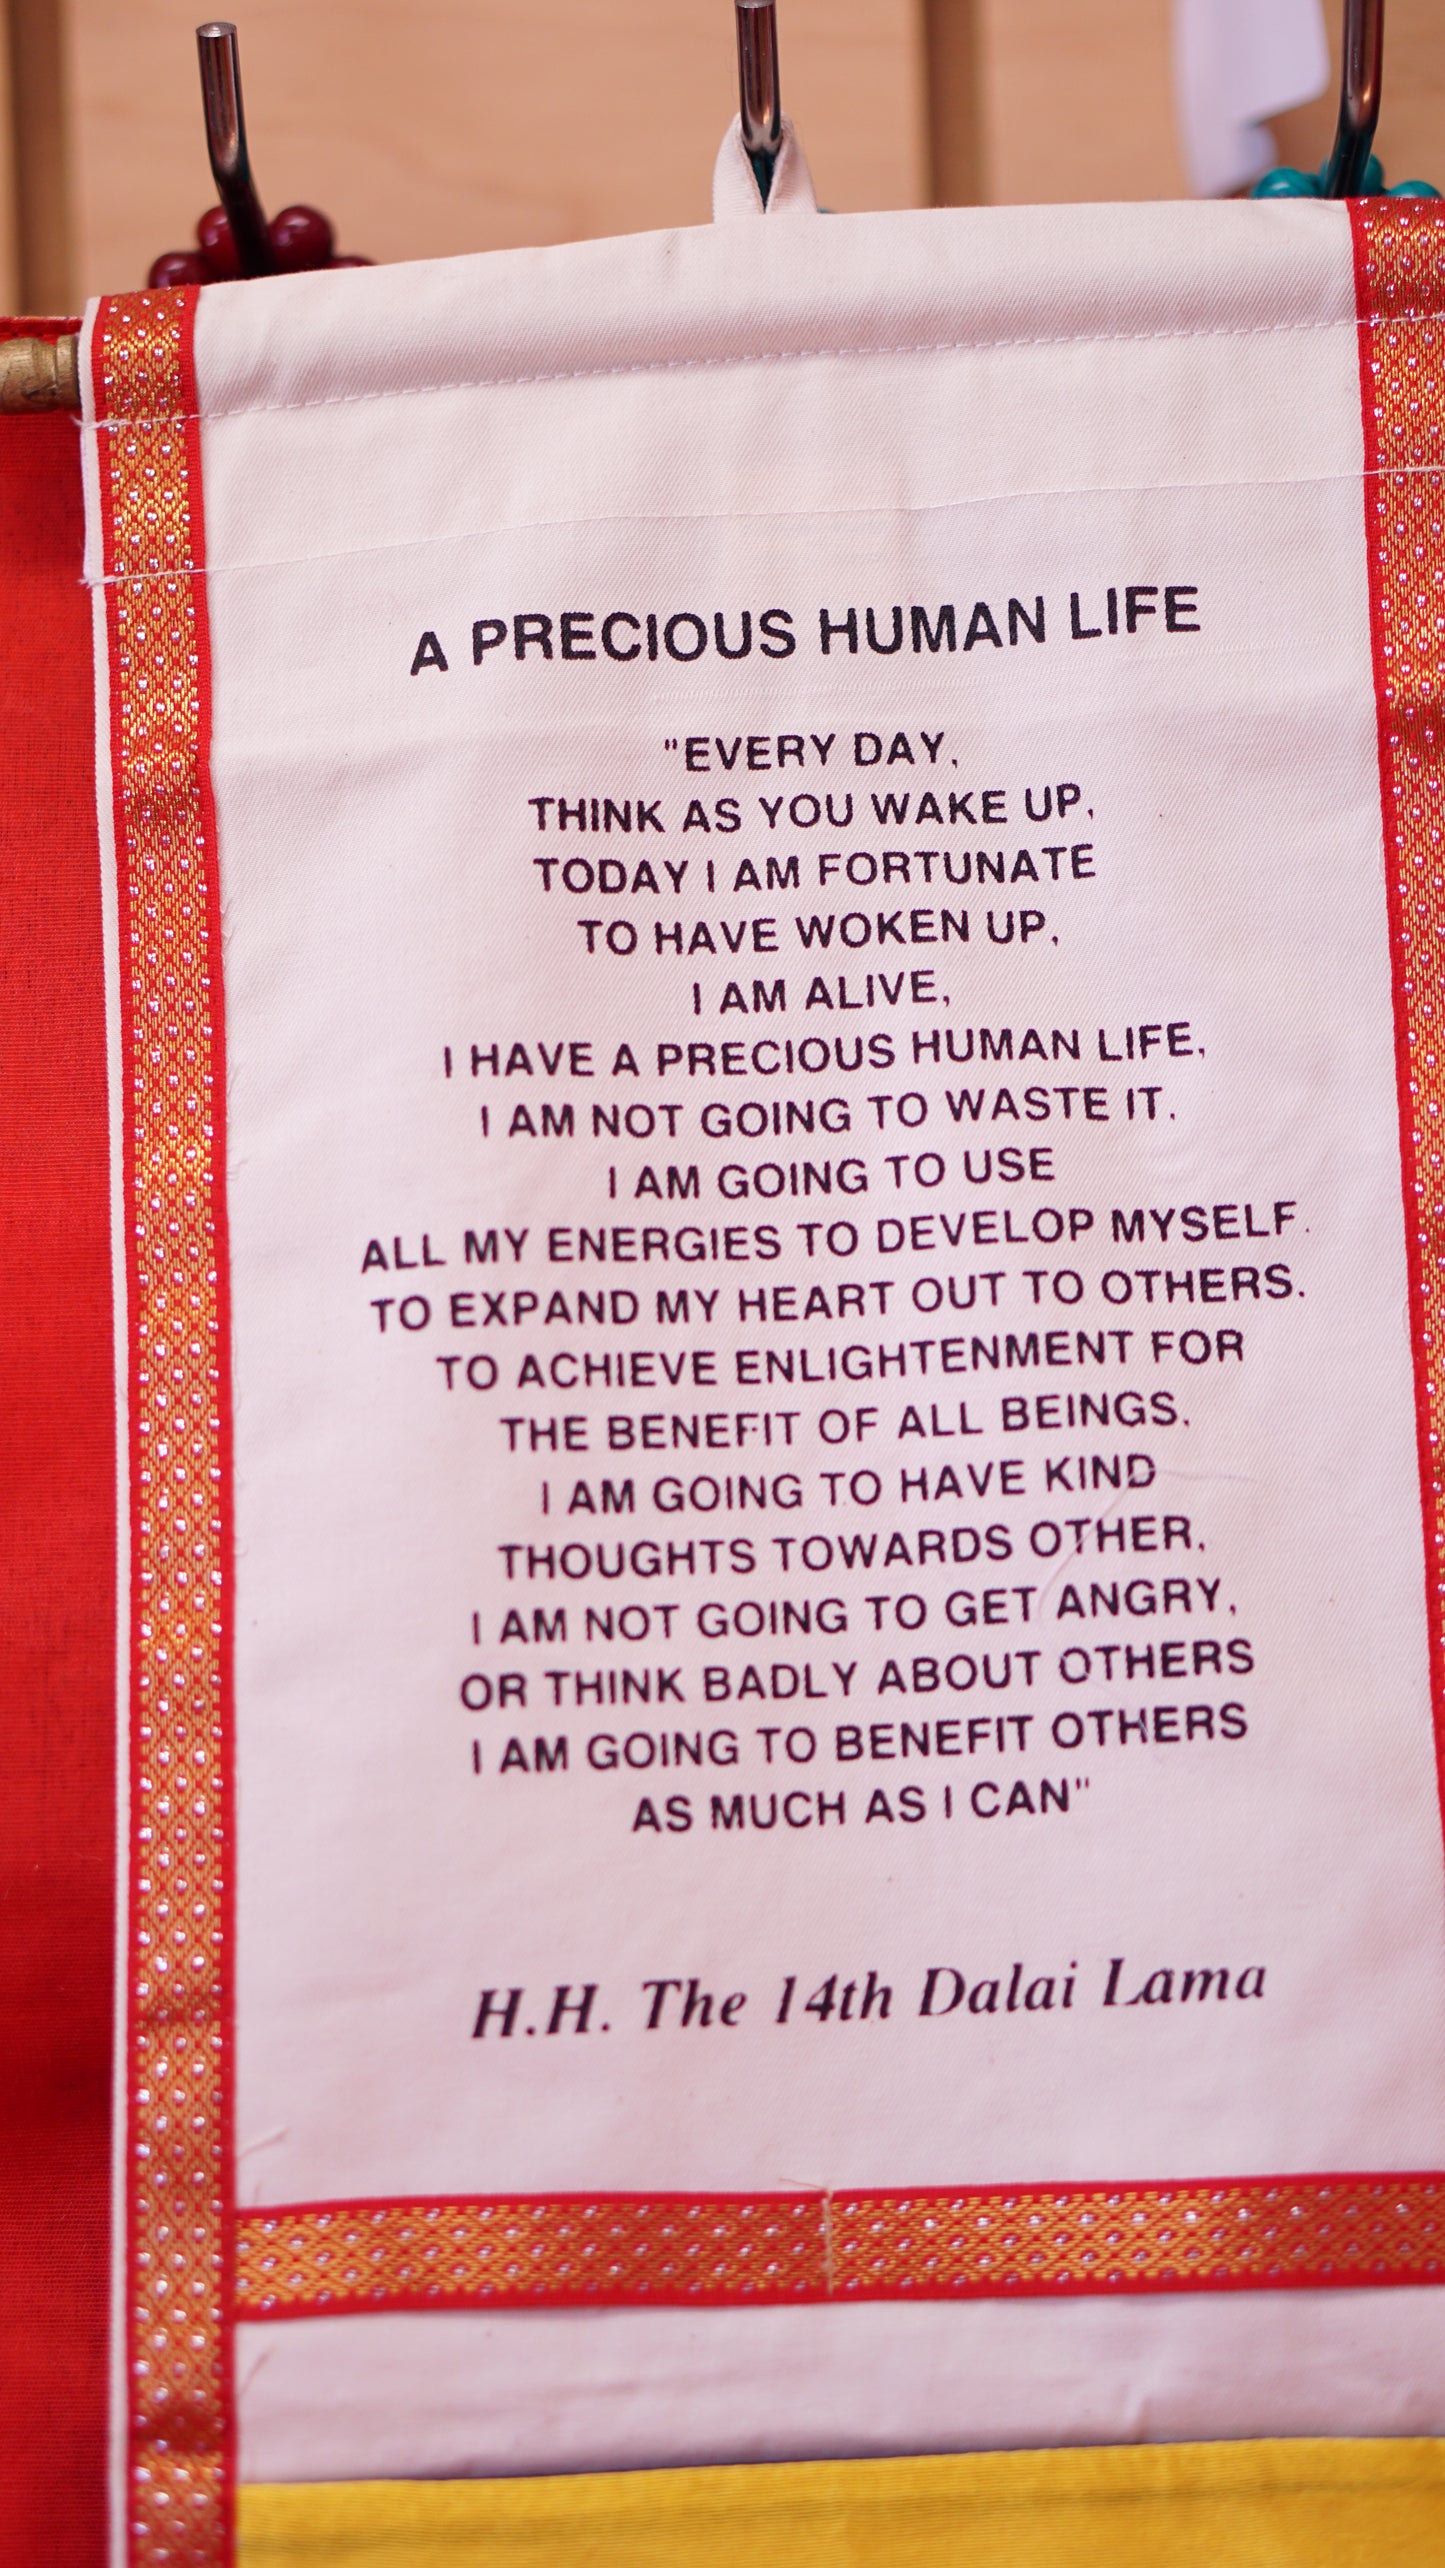 A PRECIOUS HUMAN LIFE
"EVERY DAY,
THINK AS YOU WAKE UP,
TODAY I AM FORTUNATE
TO HAVE WOKEN UP,
I AM ALIVE,
I HAVE A PRECIOUS HUMAN LIFE,
I AM NOT GOING TO WASTE IT,
I AM GOING TO USE
ALL MY ENERGIES TO DEVELOP MYSELF.
TO EXPAND MY HEART OUT TO OTHERS.
TO ACHIEVE ENLIGHTENMENT FOR
THE BENEFIT OF ALL BEINGS,
I AM GOING TO HAVE KIND
THOUGHTS TOWARDS OTHER,
I AM NOT GOING TO GET ANGRY,
OR THINK BADLY ABOUT OTHERS
I AM GOING TO BENEFIT OTHERS
AS MUCH AS I CAN"
H.H. The 14th Dalai Lama